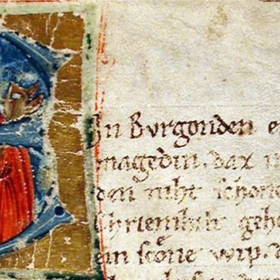 In Burgonden e
magedin. daz
den niht schon
Chriemhilt geh
ein scone wip.